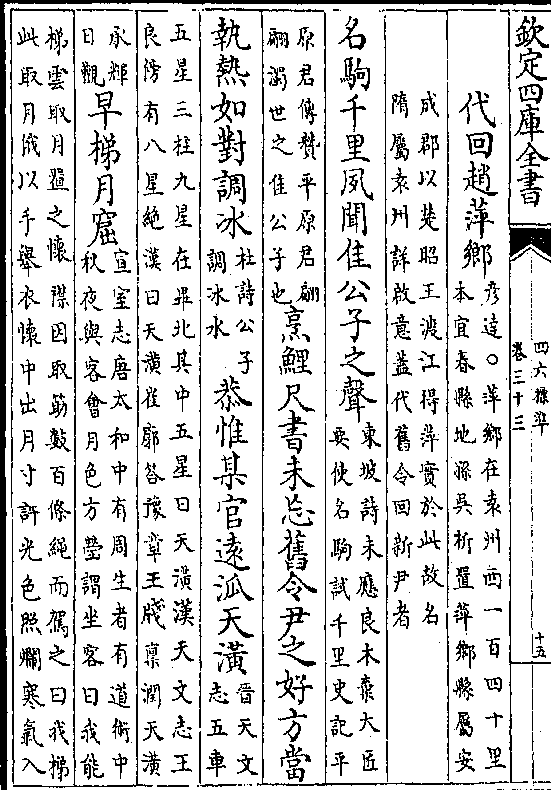 欽定四庫全書
四六標準
卷三十三
十五
代回趙萍鄉
彥逵○萍鄉在袁州西一百四十里
本宜春縣地孫吳析置萍鄉縣屬安
成郡以楚昭王渡江得萍實於此故名
隋屬袁州詳啟意蓋代舊令回新尹者
名駒千里夙聞佳公子之聲
東坡詩未應良木棄大匠
要使名駒試千里史記平
原君傳贊平原君翩
翩濁世之佳公子也
烹鯉尺書未忘舊令尹之好方當
執熱如對調冰
杜詩公子
調冰水
恭惟某官遠泒天潢
晉天文
志五車
五星三柱九星在畢北其中五星曰天潢漢天文志王
良傍有八星絶漢曰天潢崔廓答豫章王牋禀潤天潢
承輝
日觀
早梯月窟
宣室志唐太和中有周生者有道術中
秋夜與客會月色方瑩謂坐客曰我能
梯雲取月置之懷襟因取筯數百條繩而駕之曰我梯
此取月俄以手舉衣懷中出月寸許光色照爛寒氣入